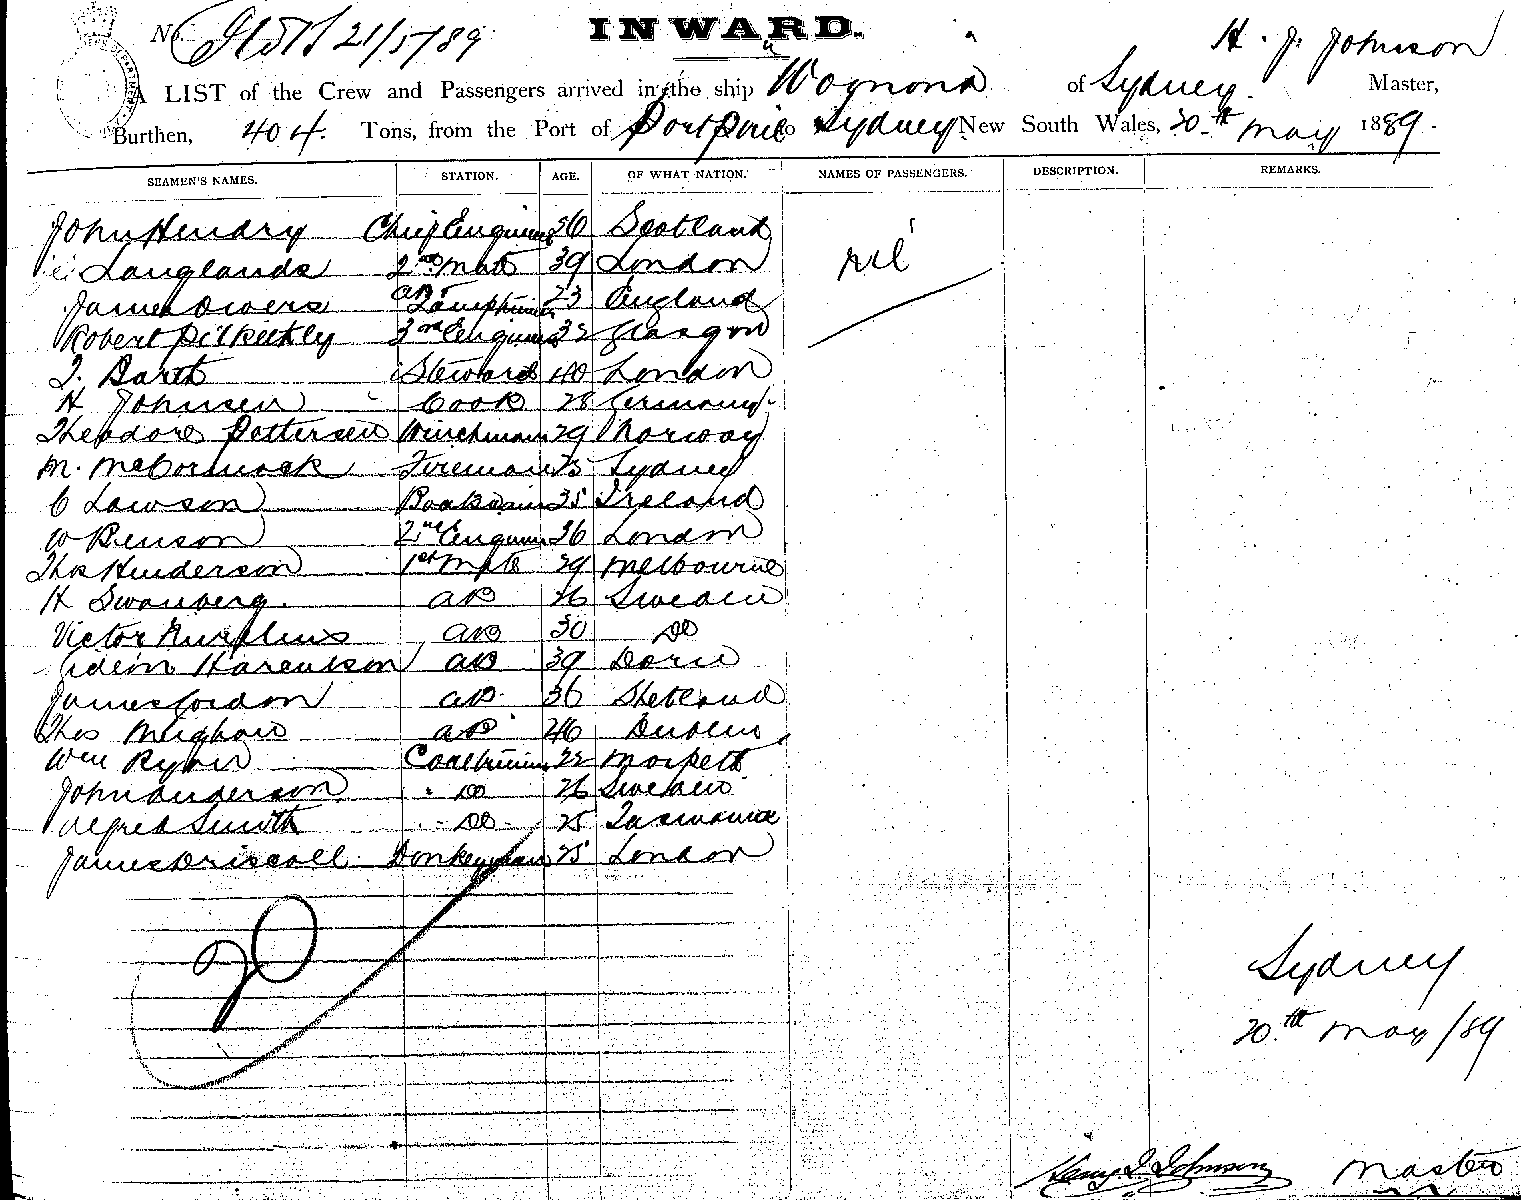 No. 21/5/89
INWARD.
H. J. Johnson
A LIST of the Crew and Passengers arrived in the ship of Sydney. Master,
Burthen, 404. Tons, from the Port of Port Pirie to Sydney New South Wales, 20th May 1889.
SEAMEN'S NAMES. STATION. AGE. OF WHAT NATION. NAMES OF PASSENGERS. DESCRIPTION. REMARKS.
John Hendry Chief Engineer 26 Scotland nil
Langlands 2nd Mate 39 London
James Owers Lamptrimmer 23 England
Robert 3rd Engineer 32 Glasgow
Barth Steward 40 London
H Johnsen Cook 28 Germany
Theodore Pettersen Winchman 29 Norway
M. McCormack Fireman 25 Sydney
C Lawson 35 Ireland
W Benson 2nd Engineer 36 London
Thos Henderson 1st Mate 29 Melbourne
H Swanberg. AB 26 Sweden
Victor AB 30 Do
Gideon AB 39
James Gordon AB 36 Shetland
Thos Meighan AB 26 Dublin
Wm Ryan Coaltrimmer 22 Morpeth
John Anderson Do 26 Sweden
Alfred Smith Do 25 Tasmania
James Driscoll Donkeyman 25 London
20
Sydney
20th May/89
Henry J Johnson Master